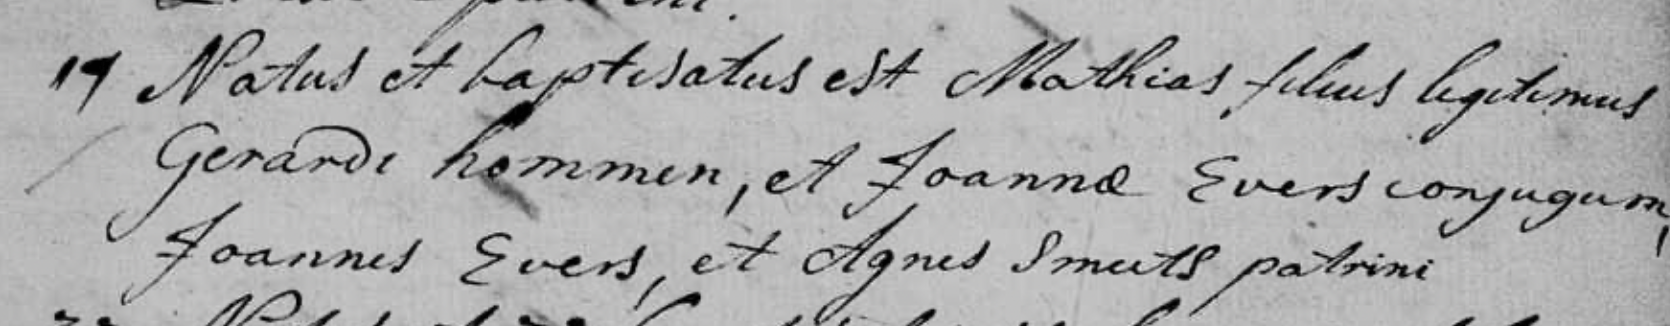 19 Natus et baptisatus est Mathias filius legitimus
Gerardi hommen, et Joannæ Evers conjugum,
Joannes Evers, et Agnes Smeets patrini